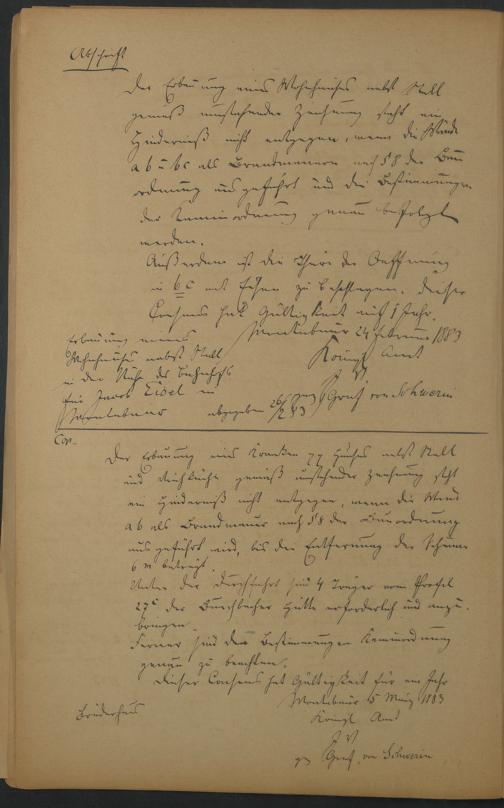 Abschrift
Der Erbauung eines Wohnhauses nebst Stall
gemäß umstehender Zeichnung steht ein
Hinderniß nicht entgegen, wenn die Wände
a b u b c als Brandmauern nach § 8 der Bau
ordnung ausgeführt und die Bestimmungen
der Kaminordnung genau befolgt
werden.
Außerdem ist die Thür der Oeffnung
in b c mit Eisen zu beschlagen. Dieser
Consens hat Gültigkeit auf 1 Jahr.
Montabaur 24 Februar 1883
Königl Amt
J V
gez Graf von Schwerin
Erbauung eines
Wohnhauses nebst Stall
in der Nähe des Bahnhofs
für Jacob Eidel in
Montabaur abgegeben 26/2 83
Cop.
Der Erbauung eines Kranken Hauses nebst Stall
und Waschküche gemäß umstehender Zeichnung steht
ein Hinderniß nicht entgegen, wenn die Wand
a b als Brandmauer nach § 8 der Bauordnung
ausgeführt wird, bis der Entfernung der Scheune
6 m beträgt.
Unter der Durchfahrt sind 4 Träger vom Profil
27c der Burbacher Hütte erforderlich und anzu-
bringen.
Ferner sind die Bestimmungen Kaminordnung
genau zu beachten.
Dieser Consens hat Gültigkeit für ein Jahr
Montabaur 15 März 1883
Königl Amt
J V
gez Graf von Schwerin
Brüderhaus